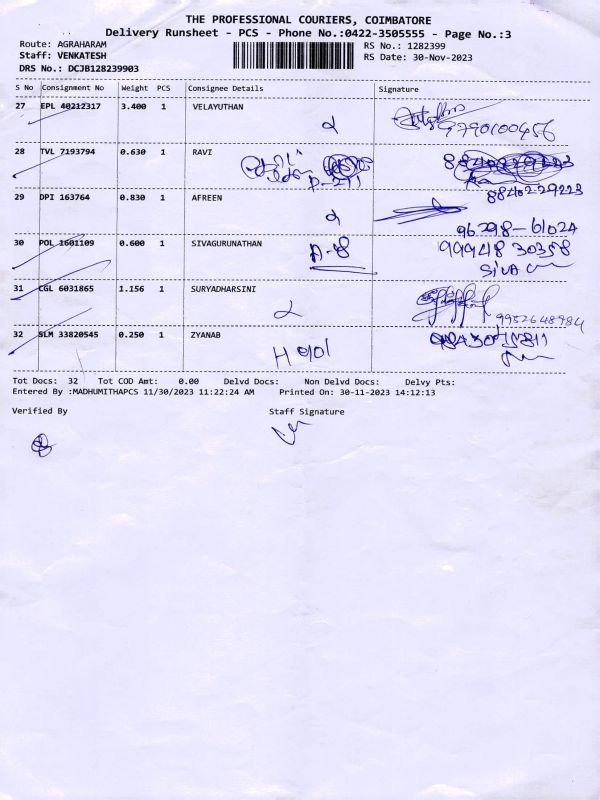 THE PROFESSIONAL COURIERS, COIMBATORE
Delivery Runsheet - PCS - Phone No.:0422-3505555 - Page No.:3
Route: AGRAHARAM
RS No.: 1282399
Staff: VENKATESH
RS Date: 30-Nov-2023
DRS No.: DCJB128239903
S No Consignment No Weight PCS Consignee Details Signature
27 EPL 40212317 3.400 1 VELAYUTHAN
9790100456
28 TVL 7193794 0.630 1 RAVI
8840229223
29 DPI 163764 0.830 1 AFREEN
96298-61024
30 POL 1601109 0.600 1 SIVAGURUNATHAN A-8 99948 30358
SIVA
31 CGL 6031865 1.156 1 SURYADHARSINI
9952648984
32 SLM 33820545 0.250 1 ZYANAB
Tot Docs: 32 Tot COD Amt: 0.00 Delvd Docs: Non Delvd Docs: Delvy Pts:
Entered By :MADHUMITHAPCS 11/30/2023 11:22:24 AM Printed On: 30-11-2023 14:12:13
Verified By Staff Signature